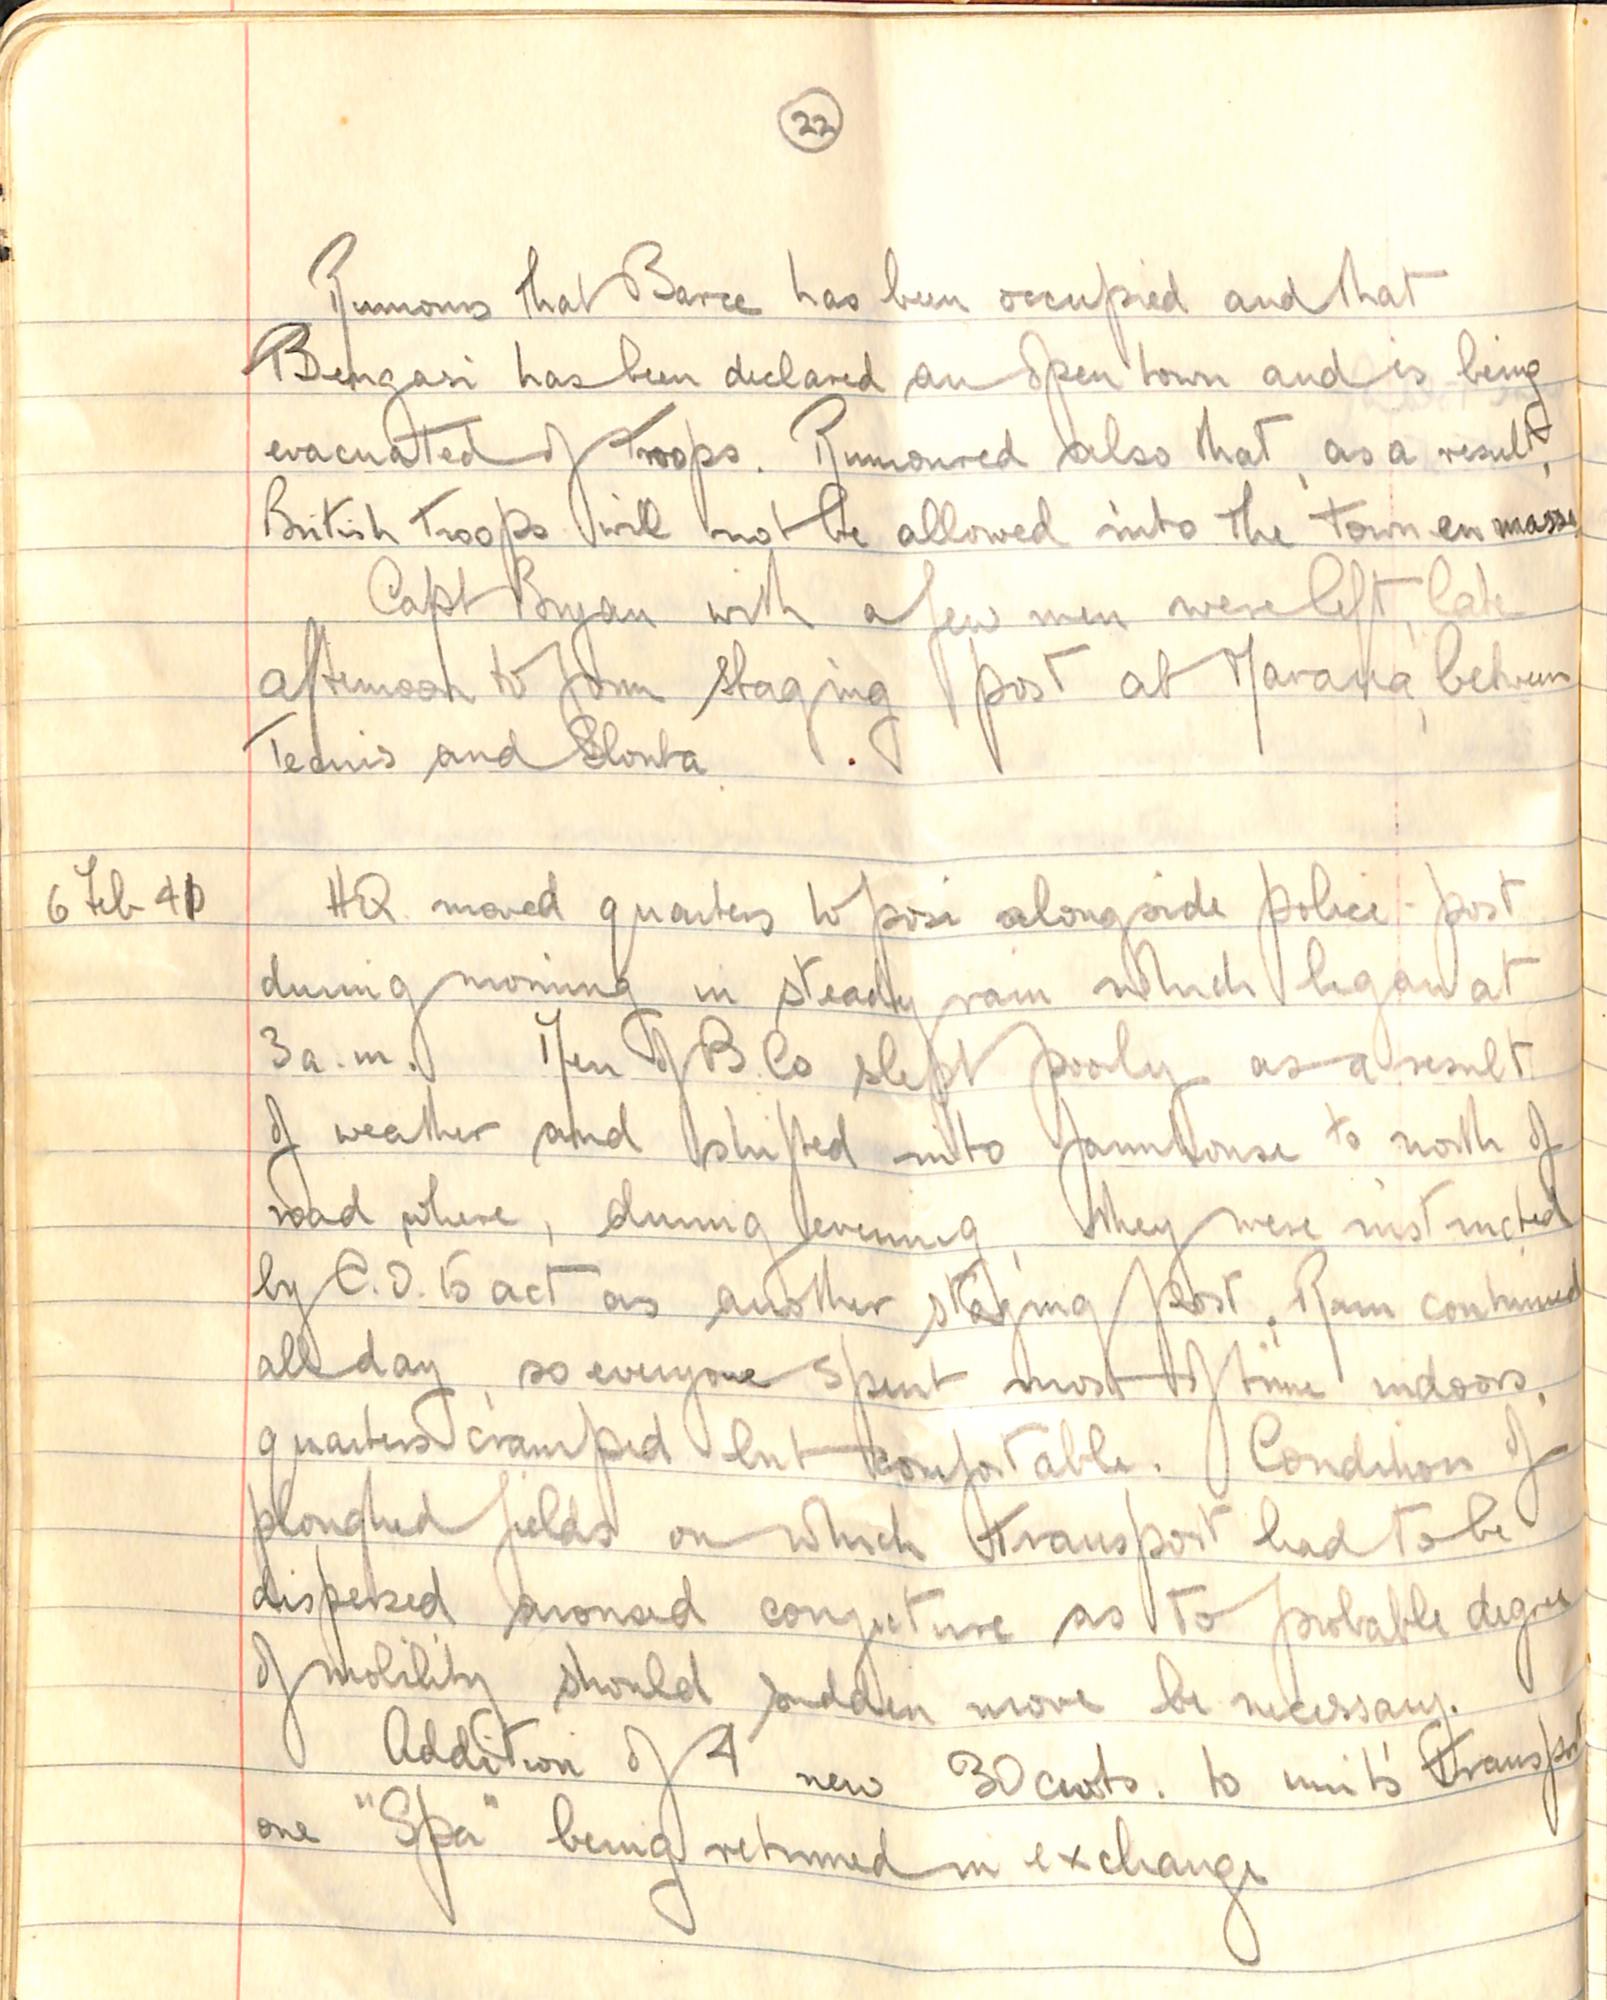 22
Rumours that Barce has been occupied and that
Bengasi has been declared an open town and is being
evacuated of troops. Rumoured also that, as a result,
British troops will not be allowed into the town en masse
Capt Bryan with a few men were left, late
afternoon to form staging post at Maraua, between
Tecnis and Slonta.
6 Feb 41 HQ moved quarters to posi alongside police-post
during morning in steady rain which began at
3 a.m. Men of B Co slept poorly as a result
of weather and shifted into farmhouse to north of
road, where, during evening, they were instructed
by C.O. to act as another staging post. Rain continued
all day, so everyone spent most of time indoors,
quarters cramped but comfortable. Condition of
ploughed fields on which transport had to be
dispersed aroused conjecture as to probable degree
of mobility should sudden move be necessary.
Addition of 4 new 30 cwts. to unit's transport
one "Spa" being returned in exchange